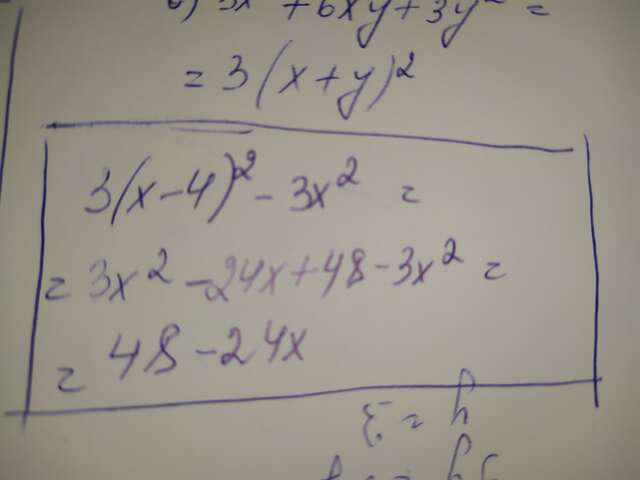 б) 3x² + 6xy + 3y² =
= 3(x+y)²
3(x-4)² - 3x² =
= 3x² - 24x + 48 - 3x² =
= 48 - 24x
y = 3